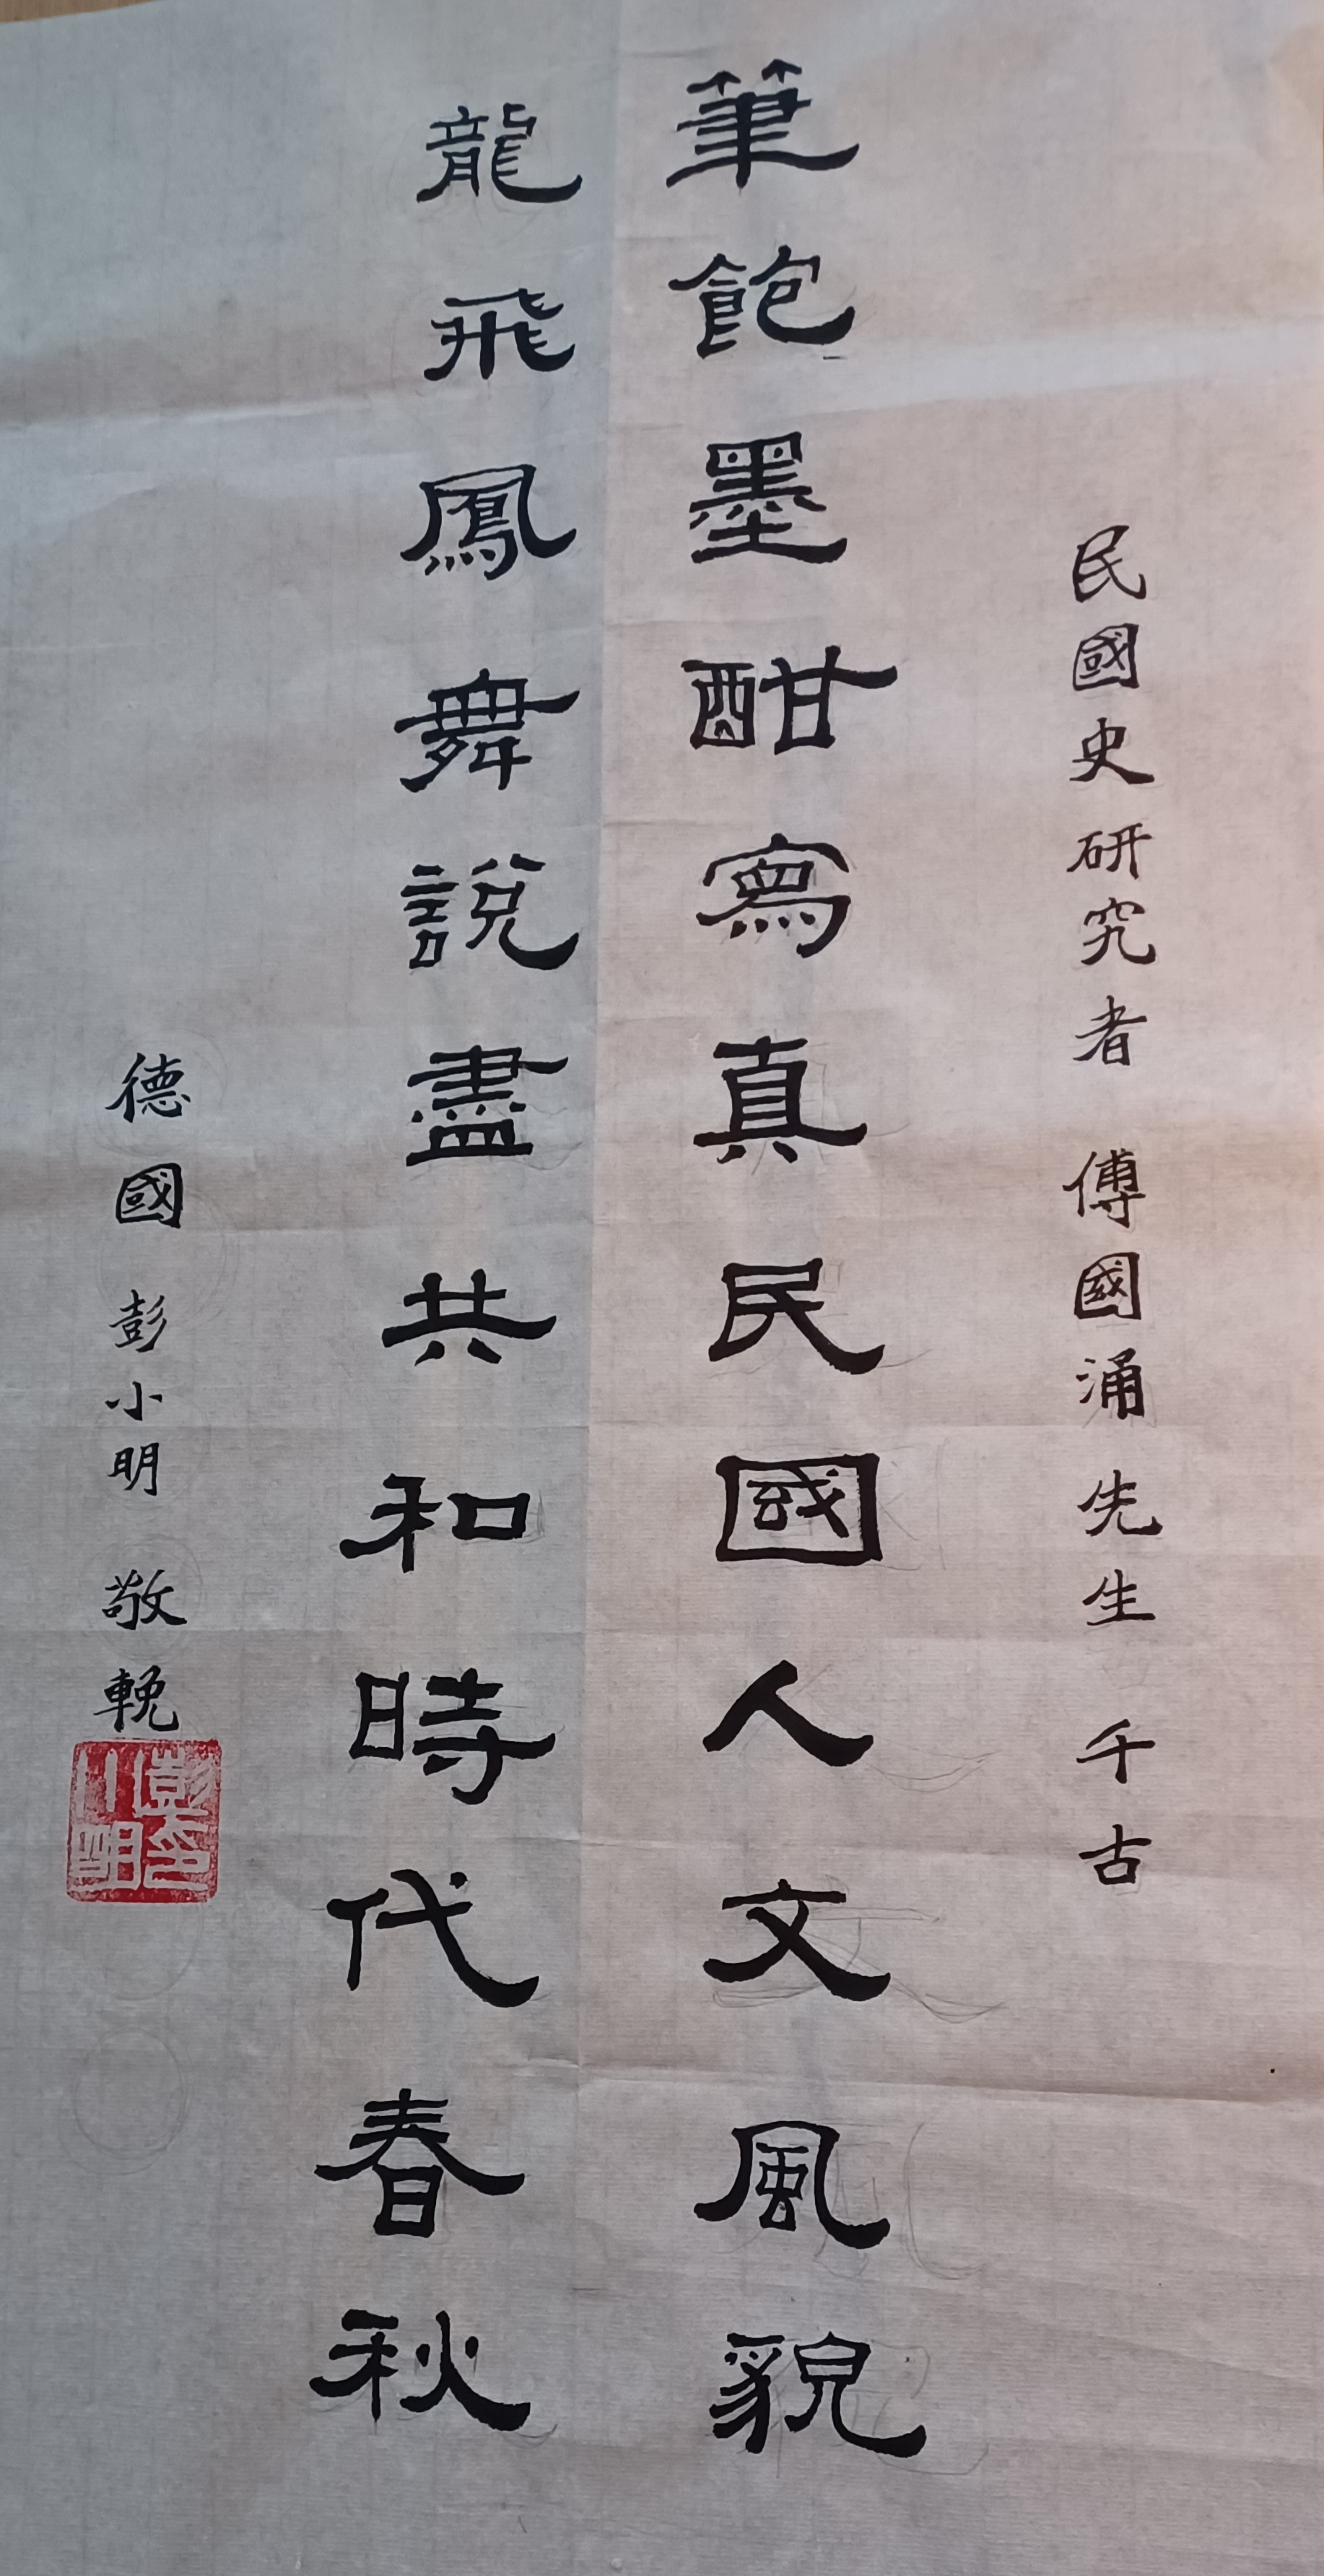 民國史研究者 傅國涌 先生 千古
筆飽墨酣寫真民國人文風貌
龍飛鳳舞說盡共和時代春秋
德國 彭小明 敬輓
彭小明印